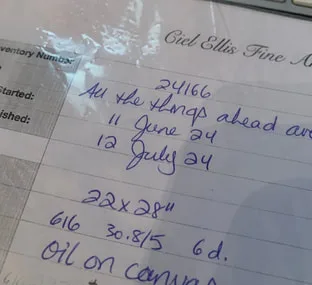 Ciel Ellis Fine
Inventory Number
24166
All the things ahead are
Started: 11 June 24
ished: 12 July 24
22x28"
616 30.8/5 6d.
Oil on canvas